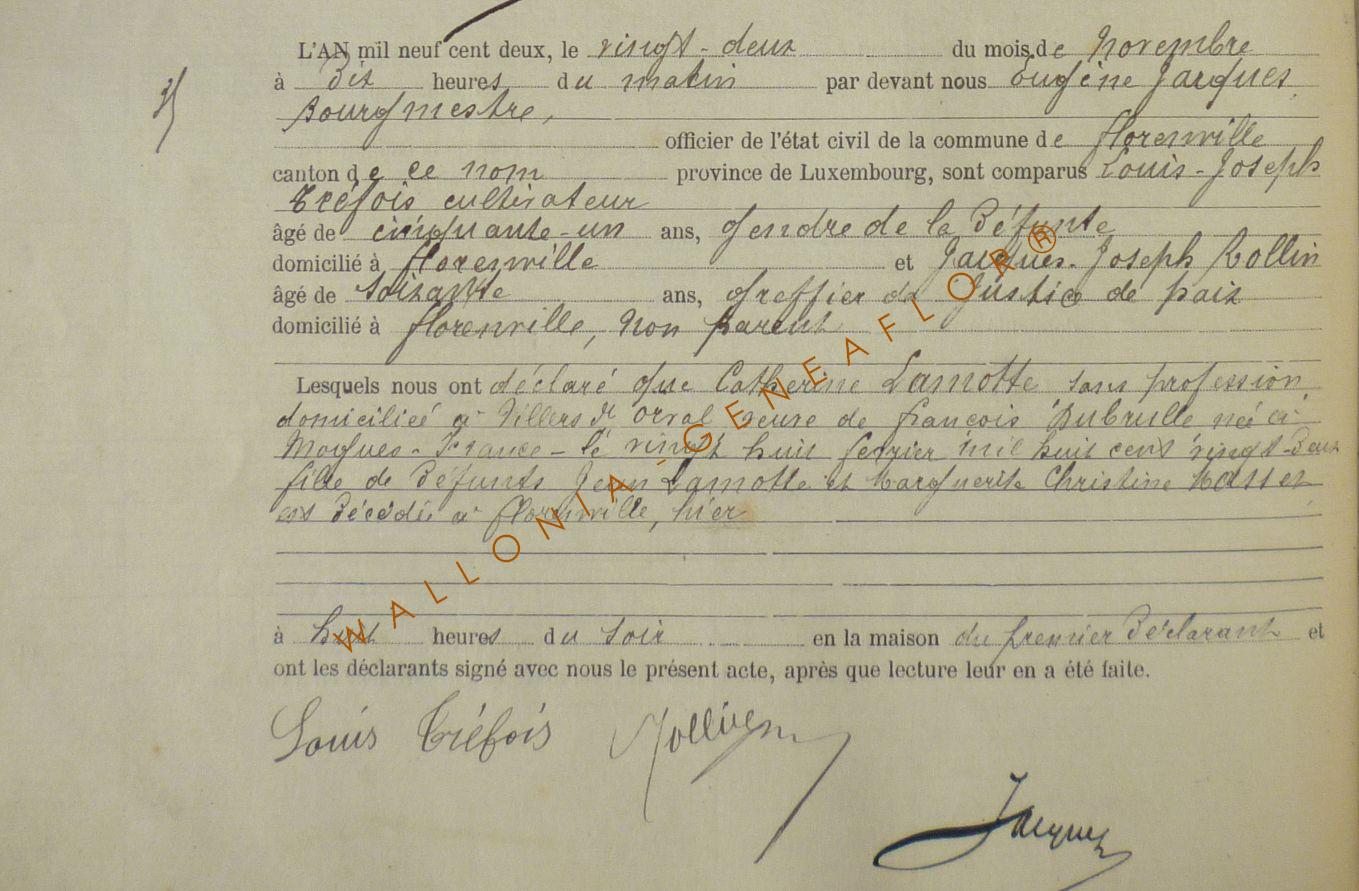 L'AN mil neuf cent deux, le vingt-deux du mois de Novembre
à Dix heures du matin par devant nous Eugène Jacques
Bourgmestre,
officier de l'état civil de la commune de florenville
canton de ce nom province de Luxembourg, sont comparus Louis-Joseph
Tréfois cultivateur
âgé de cinquante-un ans, Gendre de la Défunte
domicilié à florenville et Jacques-Joseph Rollin
âgé de soixante ans, Greffier de Justice de paix
domicilié à florenville, Non parent
Lesquels nous ont déclaré que Catherine Lamotte sans profession
domiciliée à Villers Dt Orval veuve de françois Dubrulle née à
Mogues-France-le vingt huit fevrier mil huit cent vingt-Deux
fille de Défunts Jean Lamotte et Marguerite Christine Masset
est Décédée à florenville, hier
à huit heures du soir en la maison du premier Déclarant et
ont les déclarants signé avec nous le présent acte, après que lecture leur en a été faite.
Louis Tréfois
Jacques
WALLONIA-GENEAFLOR®